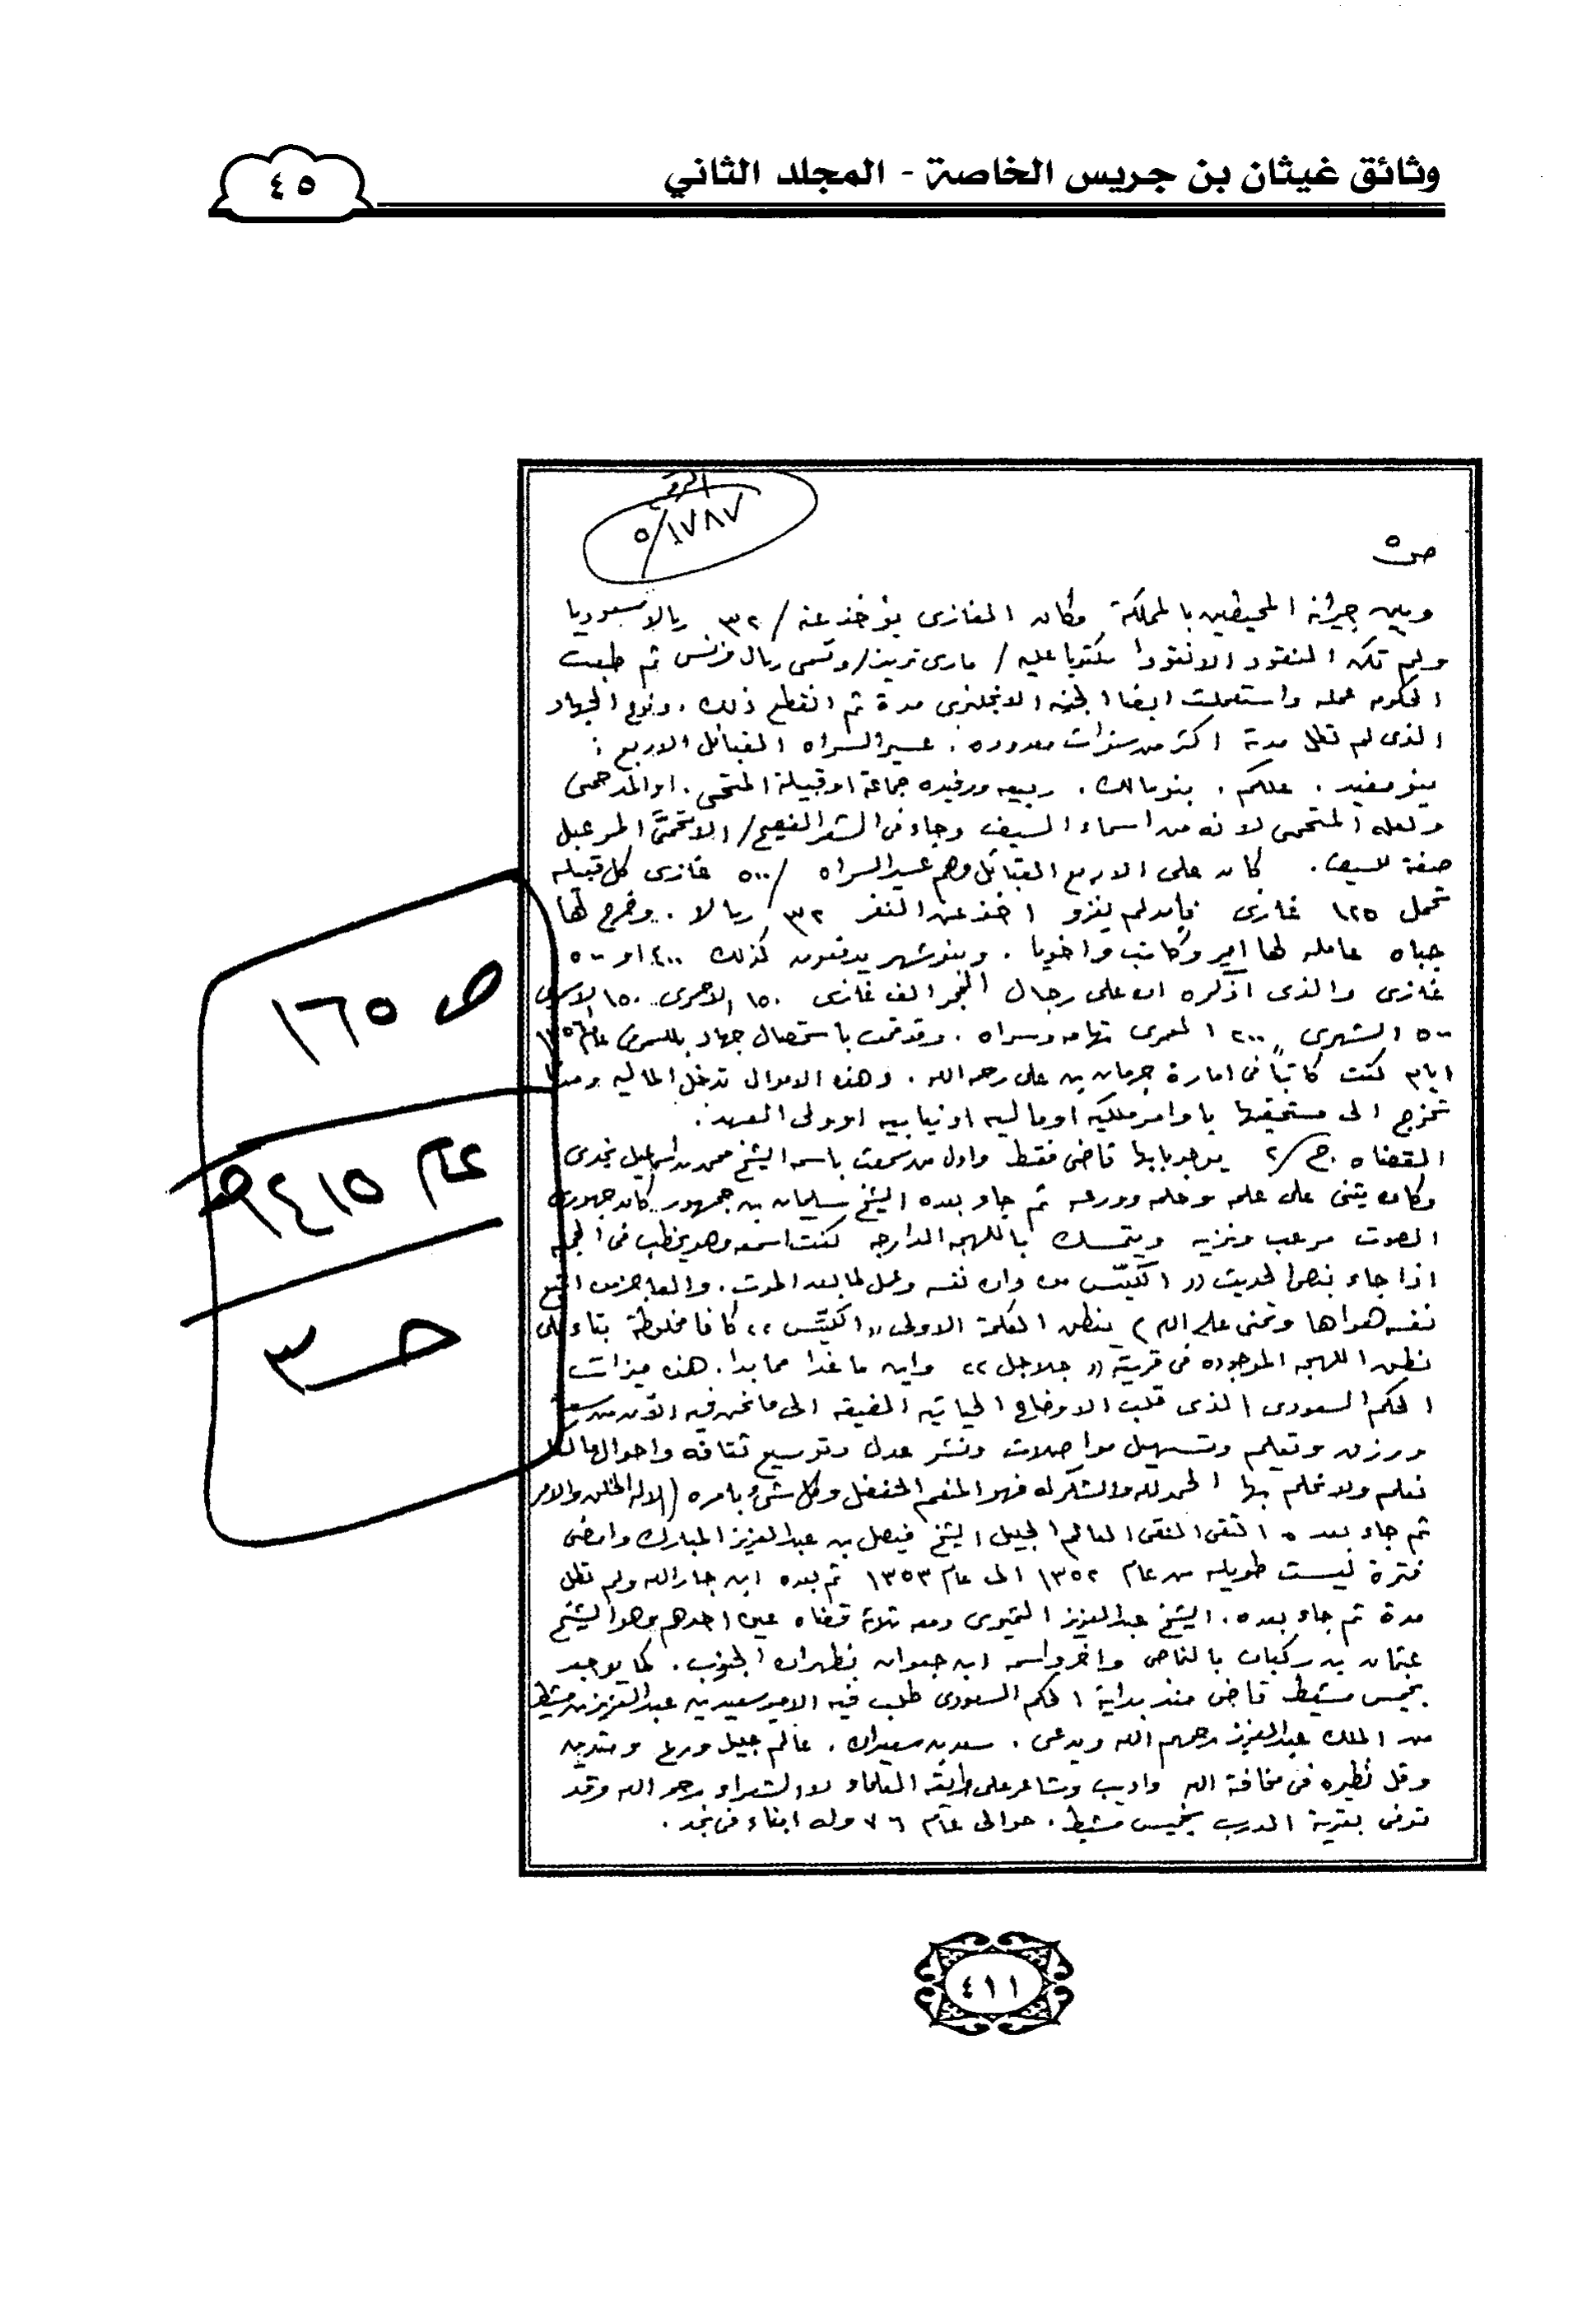 وثائق غيثان بن جريس الخاصة - المجلد الثاني
٤٥
الرقم
٥/١٧٨٧
ص٥
وبين جيرانه المحيطين بالمملكة وكان المغازى يؤخذ عنه /٣٢ ريالا سعوديا
ولم تكن النقود الا نقودا مكتوبا عليه / مارى تريز/ وتسمى ريال فرنسى ثم طبعت
الحكومه عمله واستعملت ايضا الجنيه الانجليزى مدة ثم انقطع ذلك . ونوع الجهاد
الذى لم تطل مدتة اكثر من سنوات معدوده . عسير السراه القبائل الاربع :
بنو مغيد . علكم . بنو مالك . ربيعه ورفيده جماعة او قبيلة المتحمى . او
ولعله المتحمى لانه من اسماء السيف وجاء فى الشعر الفصيح/
صفة للسيف . كان على الاربع القبائل وهم عسير السراه /٥٠٠ غازى كل قبيله
تحمل ١٢٥ غازى فان لم يغزو اخذ عن النفر ٣٢/ ريالا . وخرج لها
جباه عامله لها امير وكاتب واخويا . وبنو شهر يدفعون كذلك ٤٠٠ او ٥٠٠
غازى والذى اذكره ان على رجال الحجر الف غازى ١٥٠ الاحمرى ١٥٠ الاسمرى
٥٠٠ الشهرى ,, ٢٠٠ العمرى تهامه وسراه . وقد قمت باستحصال جهاد بللسمر عام ١٣٥٦
ايام كنت كاتبا فى امارة جرمان بن على رحمه الله . وهذه الاموال تدخل الماليه ومنها
تخرج الى مستحقيها باوامر ملكيه او ماليه او نيابيه او ولى العهد .
القضاه . ج/٢ يوجد بابها قاضى فقط واول من سمعت باسمه الشيخ محمد بن اسماعيل نجدى
وكان يثنى على علمه وحلمه وورعه ثم جاء بعده الشيخ سليمان بن جمهور كان جهورى
الصوت مرعب ونزيه ويتمسك باللهجه الدارجه كنت اسمعه وهو يخطب فى الجمعه
اذا جاء بنص الحديث (( الكيّس من دان نفسه وعمل لما بعد الموت . والعاجز من اتبع
نفسه هواها وتمنى على الله ) ينطق الكلمة الاولى ,, الكيّس ،، كافا مخلوطة بتاء على
نطق اللهجه الموجوده فى قرية (( جلاجل ،، واين ما غدا مما بدا . هذه ميزات
الحكم السعودى الذى قلب الاوضاع الحياتيه الضيقه الى ما نحن فيه الآن من سعة
ورزق وتعليم وتسهيل مواصلات ونشر عدل وتوسيع ثقافه واحوال ما كنا
نعلم ولا نحلم بها الحمد لله والشكر له فهو المنعم المتفضل وكل شئ بامره (الا له الخلق والامر
ثم جاء بعده التقى النقى العالم الجليل الشيخ فيصل بن عبدالعزيز المبارك وامضى
فترة ليست طويله من عام ١٣٥٢ الى عام ١٣٥٣ ثم بعده ابن جارالله ولم تطل
مدة ثم جاء بعده . الشيخ عبدالعزيز ومعه ثلاثة قضاه عين احدهم وهو الشيخ
عثمان بن ركبان بالنماص واخر واسمه ابن بظهران الجنوب . كما يوجد
بخميس مشيط قاضى منذ بداية الحكم السعودى طلب فيه الامير سعيد بن عبدالعزيز بن مشيط
من الملك عبدالعزيز رحمهم الله ويدعى . سعد بن سعيدان . عالم جليل ورع ومتدين
وقل نظيره فى مخافة الله واديب وشاعر على طريقة العلماء لا الشعراء رحمه الله وقد
توفى بقرية الدرب بخميس مشيط . حوالى عام ٧٦ وله ابناء فى نجد .
ص ١٦٥
عام ١٤١٥هـ
حـ ٣
٤١١